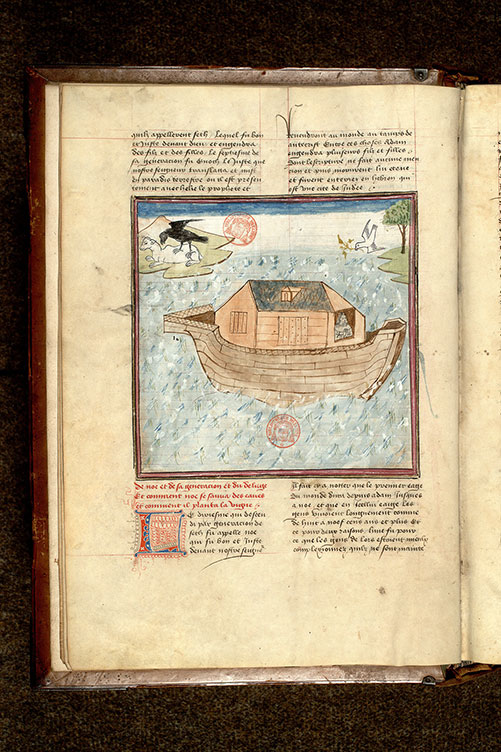 quilz appellerent seth. Lequel fu bon
et Juste devant dieu et engendra
des filz et des filles. Le septisme de
sa generacion fu Enoch le Juste que
nostre seigneur translatta et mist
en paradis terrestre ou il est presen
tement avec helie le prophete et
revendront au monde au temps de
antecrist Entre ces choses Adam
engendra plusieurs filz et filles
Dont lescripture ne fait aucune men
cion et puis mourut
et furent enterrez en hebron qui
est une cite de Judee
De noe et de sa generacion et du deluge
Et comment noe se sauva des eaues
et comment il planta la vigne
Le Divesme qui descen
di par generacion de
seth fu appelle noe
qui fu bon et Juste
devant nostre seigne
Il fait cy a noter que le premier eage
du monde dura depuis adam Jusques
a noe, et que en icellui eaige les
gens vivoient longuement comme
de huit a noef cens ans et plus Et
ce pour deux raisons. lune fu pour
ce que les gens de lors estoient mieulx
complexionnez quilz ne sont maint